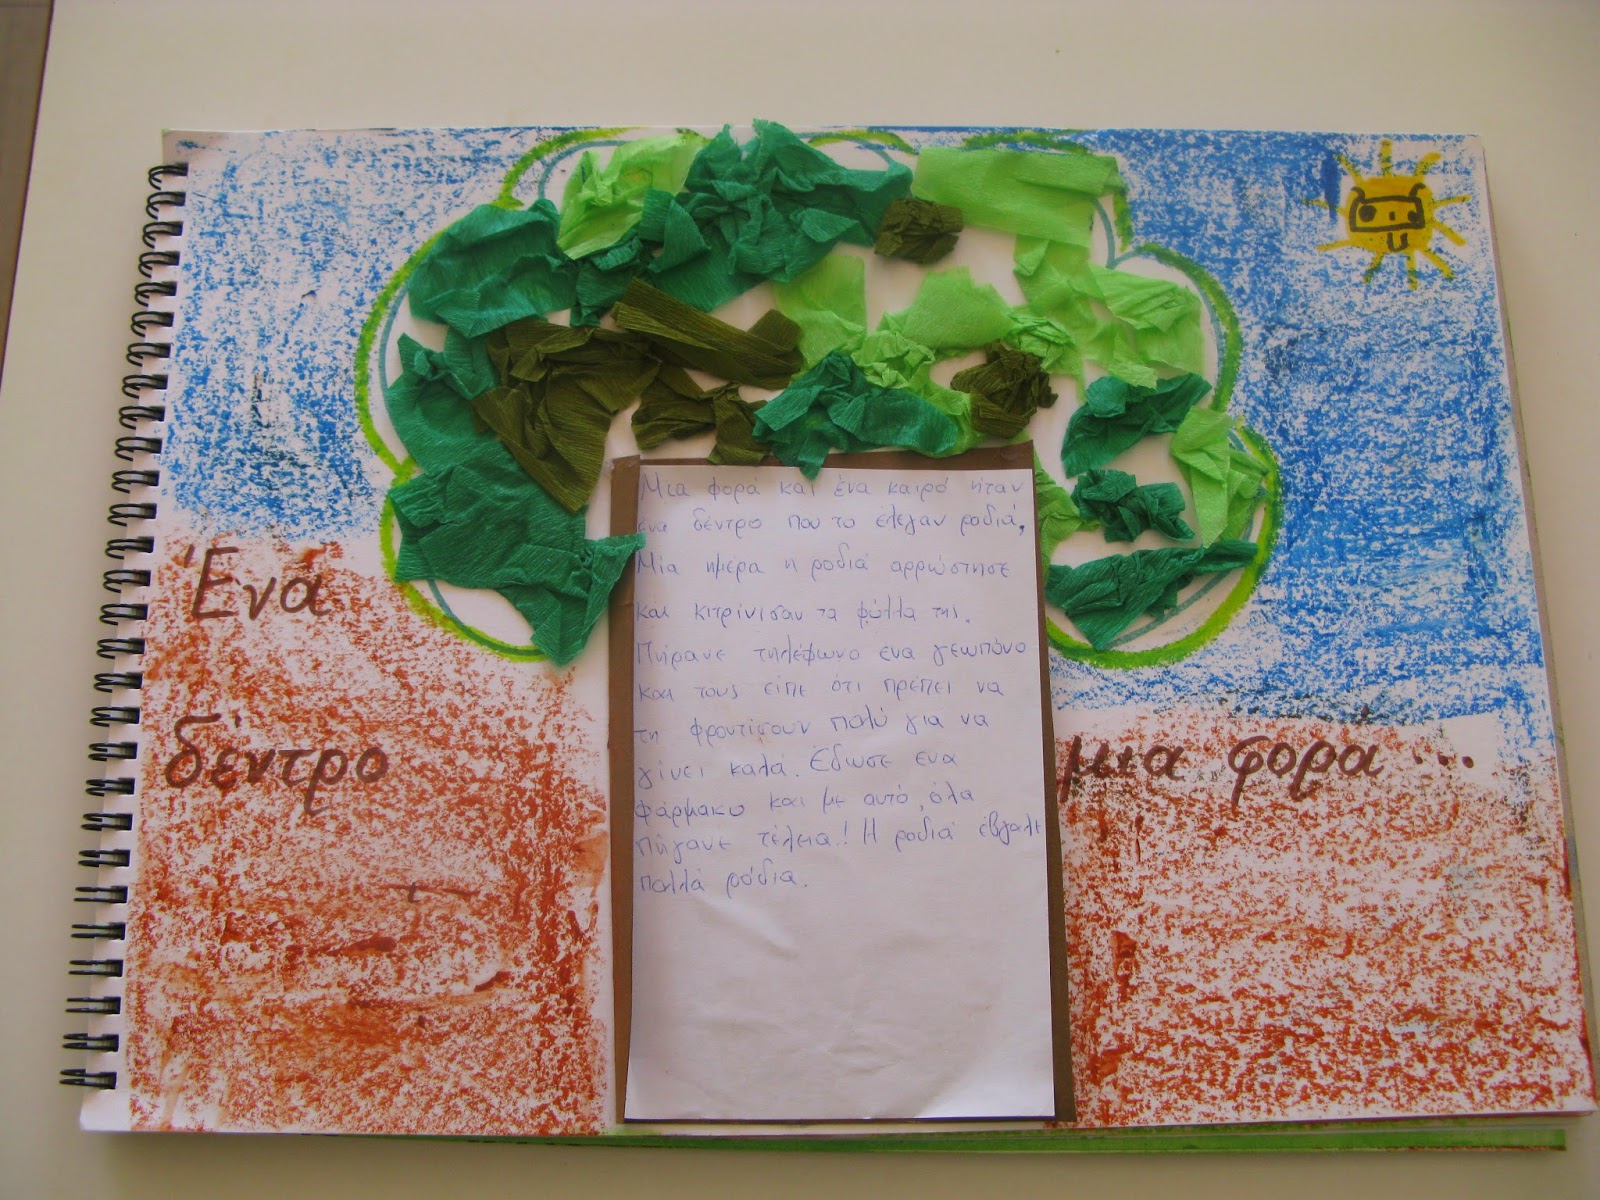 Ένα
δέντρο
μια φορα...
Μια φορά και ένα καιρό ήταν
ενα δέντρο που το έλεγαν ροδιά,
Μία ημέρα η ροδιά αρρώστησε
και κιτρίνισαν τα φύλλα της.
Πήρανε τηλέφωνο ενα γεωπόνο
και τους είπε ότι πρέπει να
τη φροντίσουν πολύ για να
γίνει καλά. Εδωσε ενα
φάρμακο και με αυτό, όλα
πήγανε τέλεια! Η ροδιά έβγαλε
πολλά ρόδια.